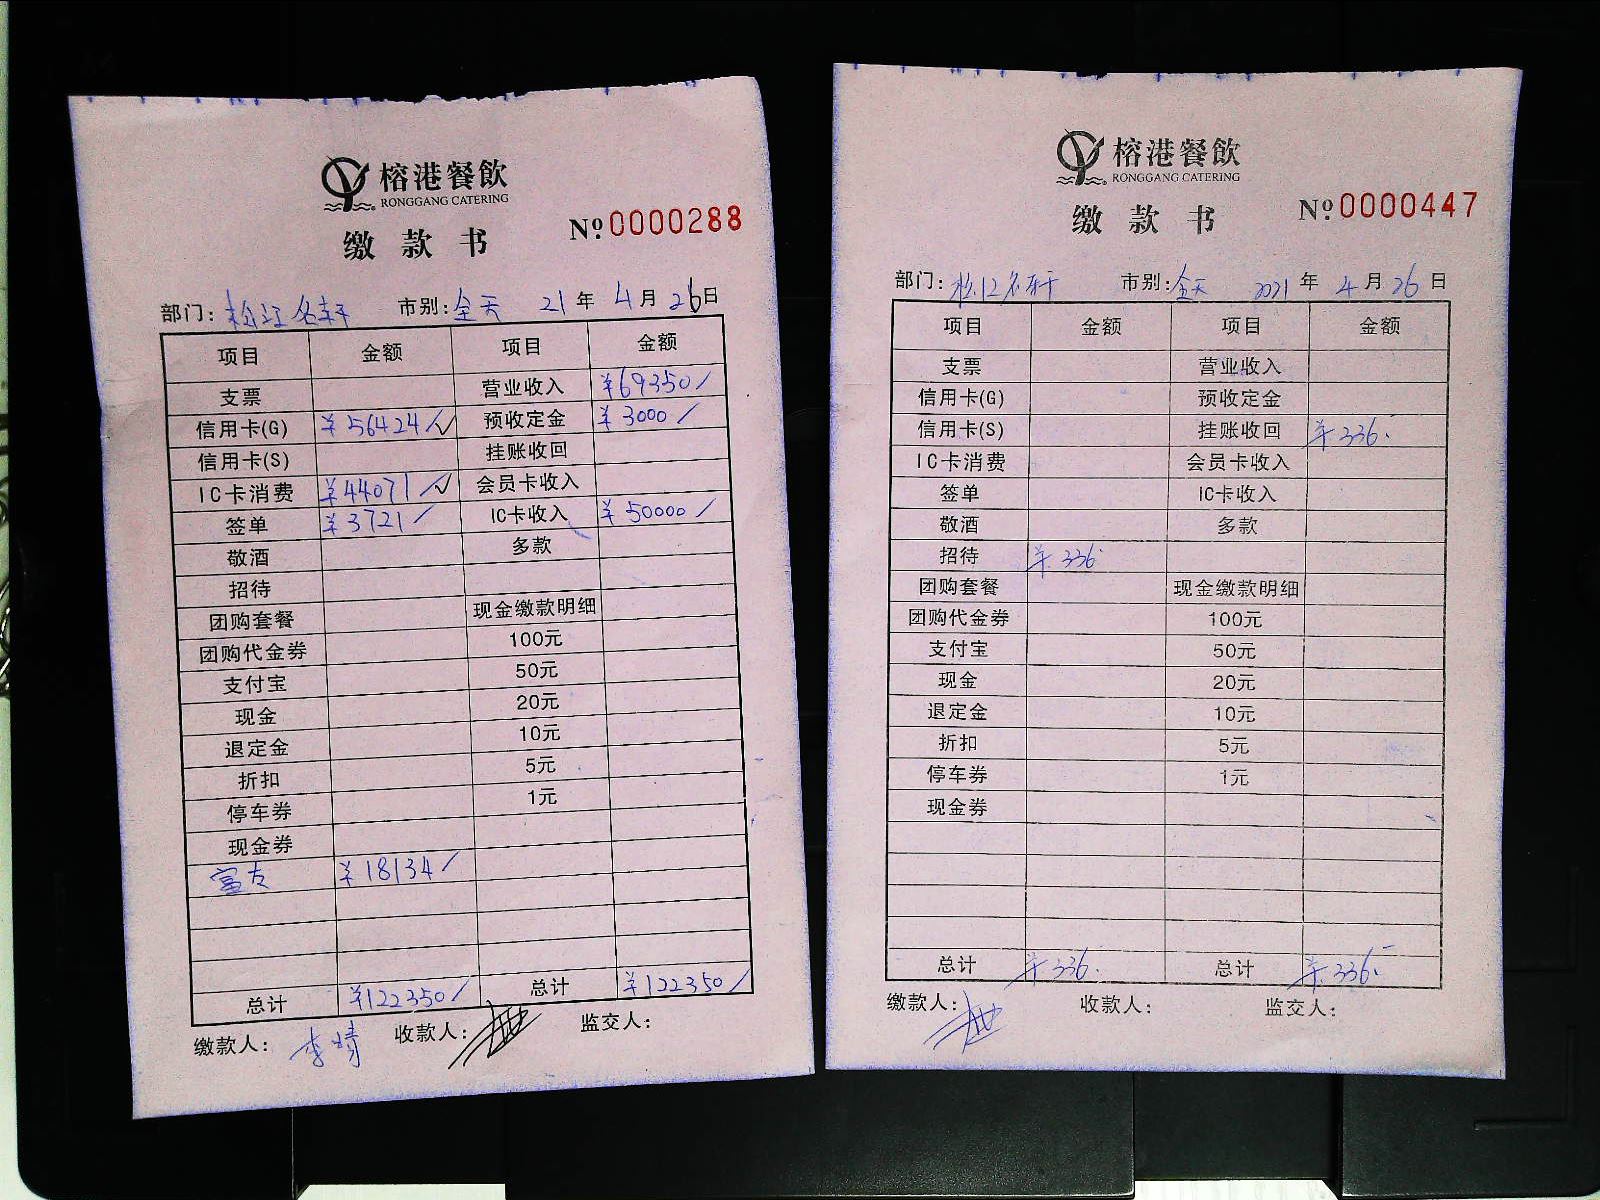 榕港餐飲
RONGGANG CATERING
缴款书
№0000288
部门: 松江名轩 市别: 全天 21年 4月 26日
项目 金额 项目 金额
支票 营业收入 ¥69350/
信用卡(G) ¥56424/ 预收定金 ¥3000/
信用卡(S) 挂账收回
IC卡消费 ¥44071/ 会员卡收入
签单 ¥3721/ IC卡收入 ¥50000/
敬酒 多款
招待
团购套餐 现金缴款明细
团购代金券 100元
支付宝 50元
现金 20元
退定金 10元
折扣 5元
停车券 1元
现金券
富友 ¥18134/
总计 ¥122350/ 总计 ¥122350/
缴款人: 李靖 收款人: 监交人:
榕港餐飲
RONGGANG CATERING
缴款书
№0000447
部门: 松江名轩 市别: 全天 2021年 4月 26日
项目 金额 项目 金额
支票 营业收入
信用卡(G) 预收定金
信用卡(S) 挂账收回 ¥336.
IC卡消费 会员卡收入
签单 IC卡收入
敬酒 多款
招待 ¥336.
团购套餐 现金缴款明细
团购代金券 100元
支付宝 50元
现金 20元
退定金 10元
折扣 5元
停车券 1元
现金券
总计 ¥336. 总计 ¥336.
缴款人: 收款人: 监交人: